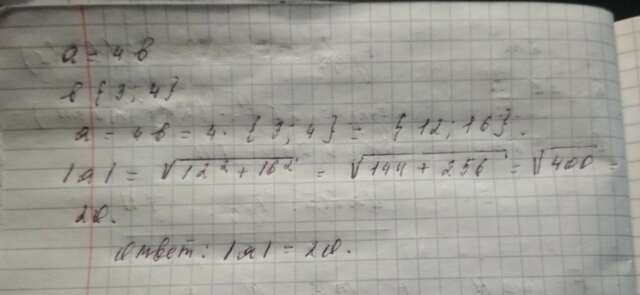 a = 4b
b {3; 4}
a = 4b = 4 · {3; 4} = {12; 16}.
|a| = √12² + 16² = √144 + 256 = √400 =
20.
Ответ: |a| = 20.